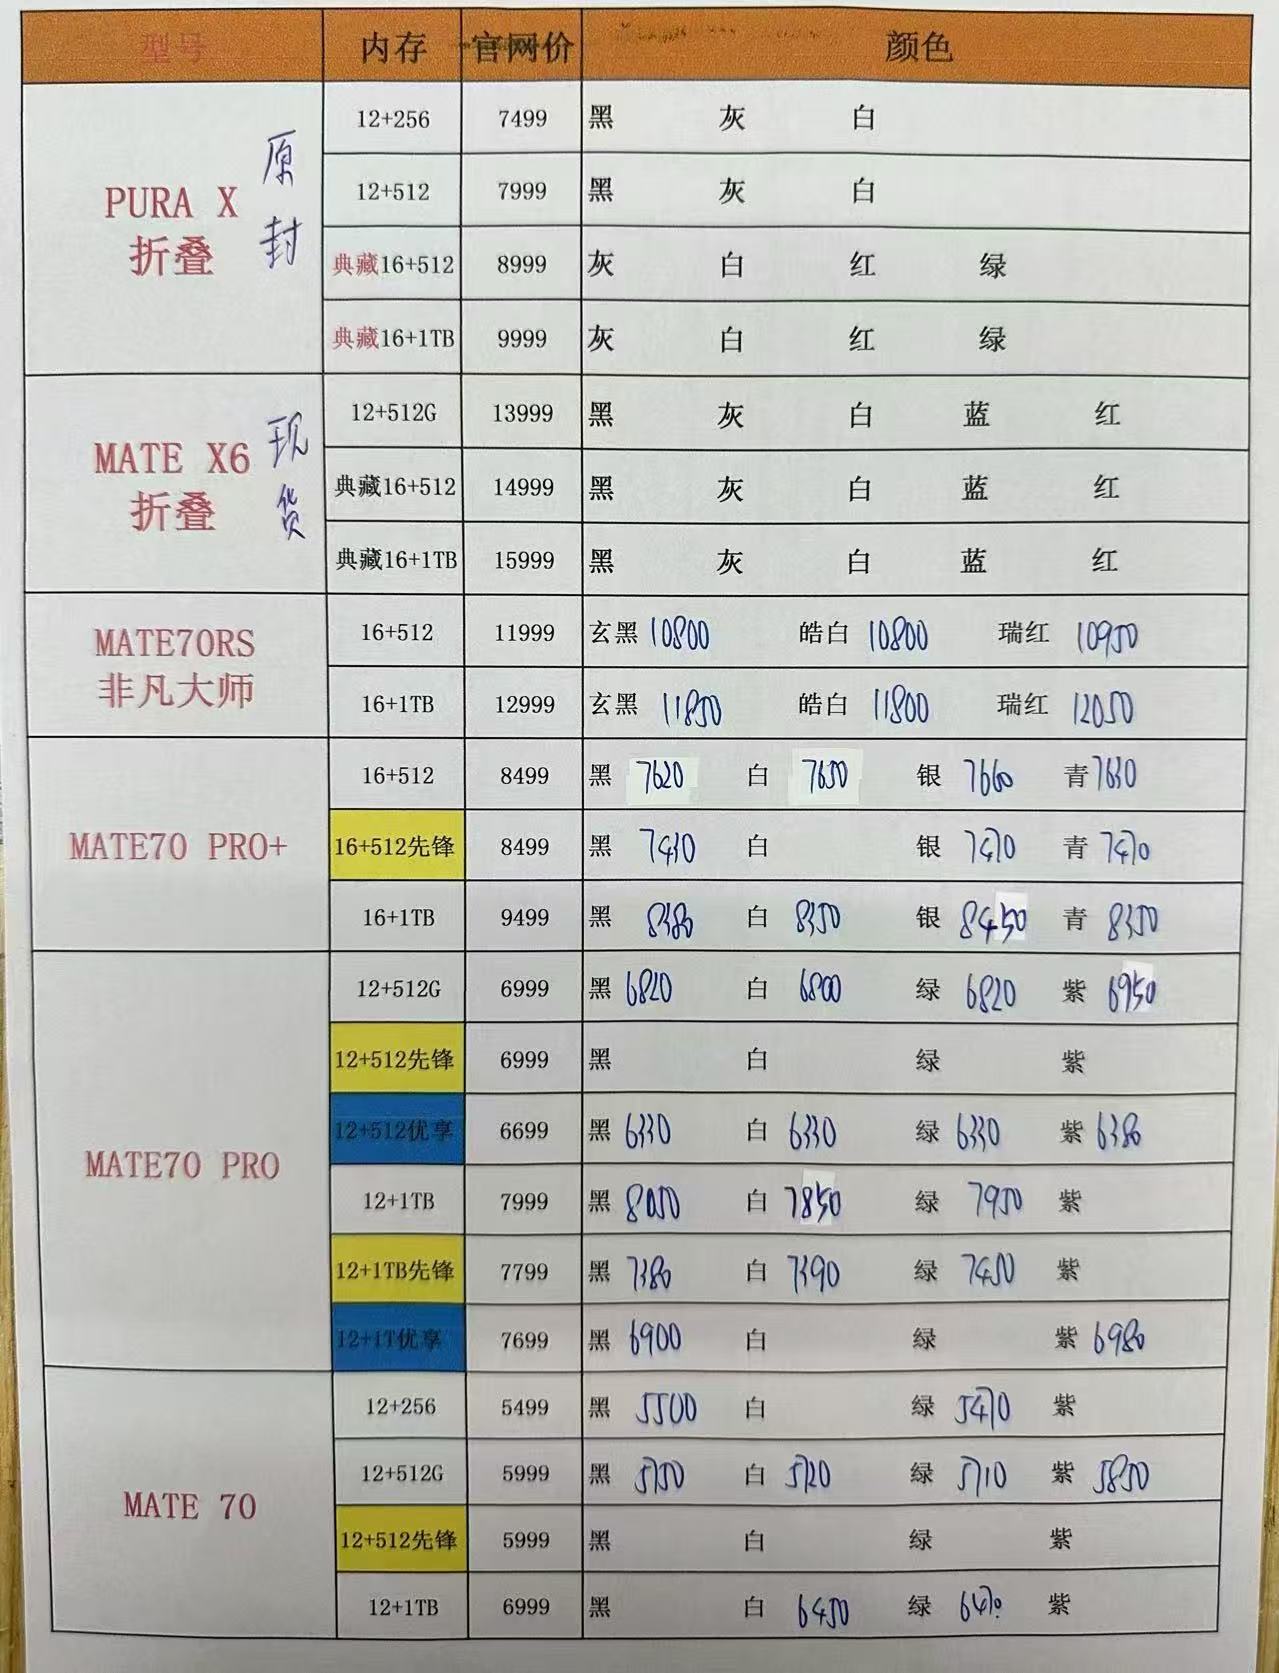 型号 内存 官网价 颜色
PURA X 折叠 原封
12+256 7499 黑 灰 白
12+512 7999 黑 灰 白
典藏16+512 8999 灰 白 红 绿
典藏16+1TB 9999 灰 白 红 绿
MATE X6 折叠 现货
12+512G 13999 黑 灰 白 蓝 红
典藏16+512 14999 黑 灰 白 蓝 红
典藏16+1TB 15999 黑 灰 白 蓝 红
MATE70RS 非凡大师
16+512 11999 玄黑 10800 皓白 10800 瑞红 10950
16+1TB 12999 玄黑 11850 皓白 11800 瑞红 12050
MATE70 PRO+
16+512 8499 黑 7620 白 7650 银 7660 青 7630
16+512先锋 8499 黑 7430 白 银 7470 青 7470
16+1TB 9499 黑 8380 白 8350 银 8450 青 8350
MATE70 PRO
12+512G 6999 黑 6820 白 6800 绿 6820 紫 6950
12+512先锋 6999 黑 白 绿 紫
12+512优享 6699 黑 6330 白 6330 绿 6330 紫 6380
12+1TB 7999 黑 8050 白 7850 绿 7950 紫
12+1TB先锋 7799 黑 7380 白 7390 绿 7450 紫
12+1T优享 7699 黑 6900 白 绿 紫 6980
MATE 70
12+256 5499 黑 5500 白 绿 5470 紫
12+512G 5999 黑 5750 白 5720 绿 5710 紫 5850
12+512先锋 5999 黑 白 绿 紫
12+1TB 6999 黑 白 6450 绿 6470 紫